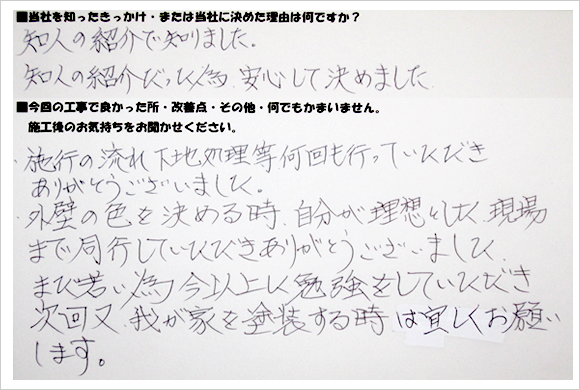 ■当社を知ったきっかけ・または当社に決めた理由は何ですか？
知人の紹介で知りました。
知人の紹介だった為、安心して決めました
■今回の工事で良かった所・改善点・その他・何でもかまいません。
施工後のお気持ちをお聞かせください。
・施行の流れ 下地処理等何回も行っていただき
ありがとうございました。
・外壁の色を決める時、自分が理想とした、現場
まで同行していただきありがとうございました
まだ若い為、今以上に勉強をしていただき
次回又、我が家を塗装する時は宜しくお願い
します。